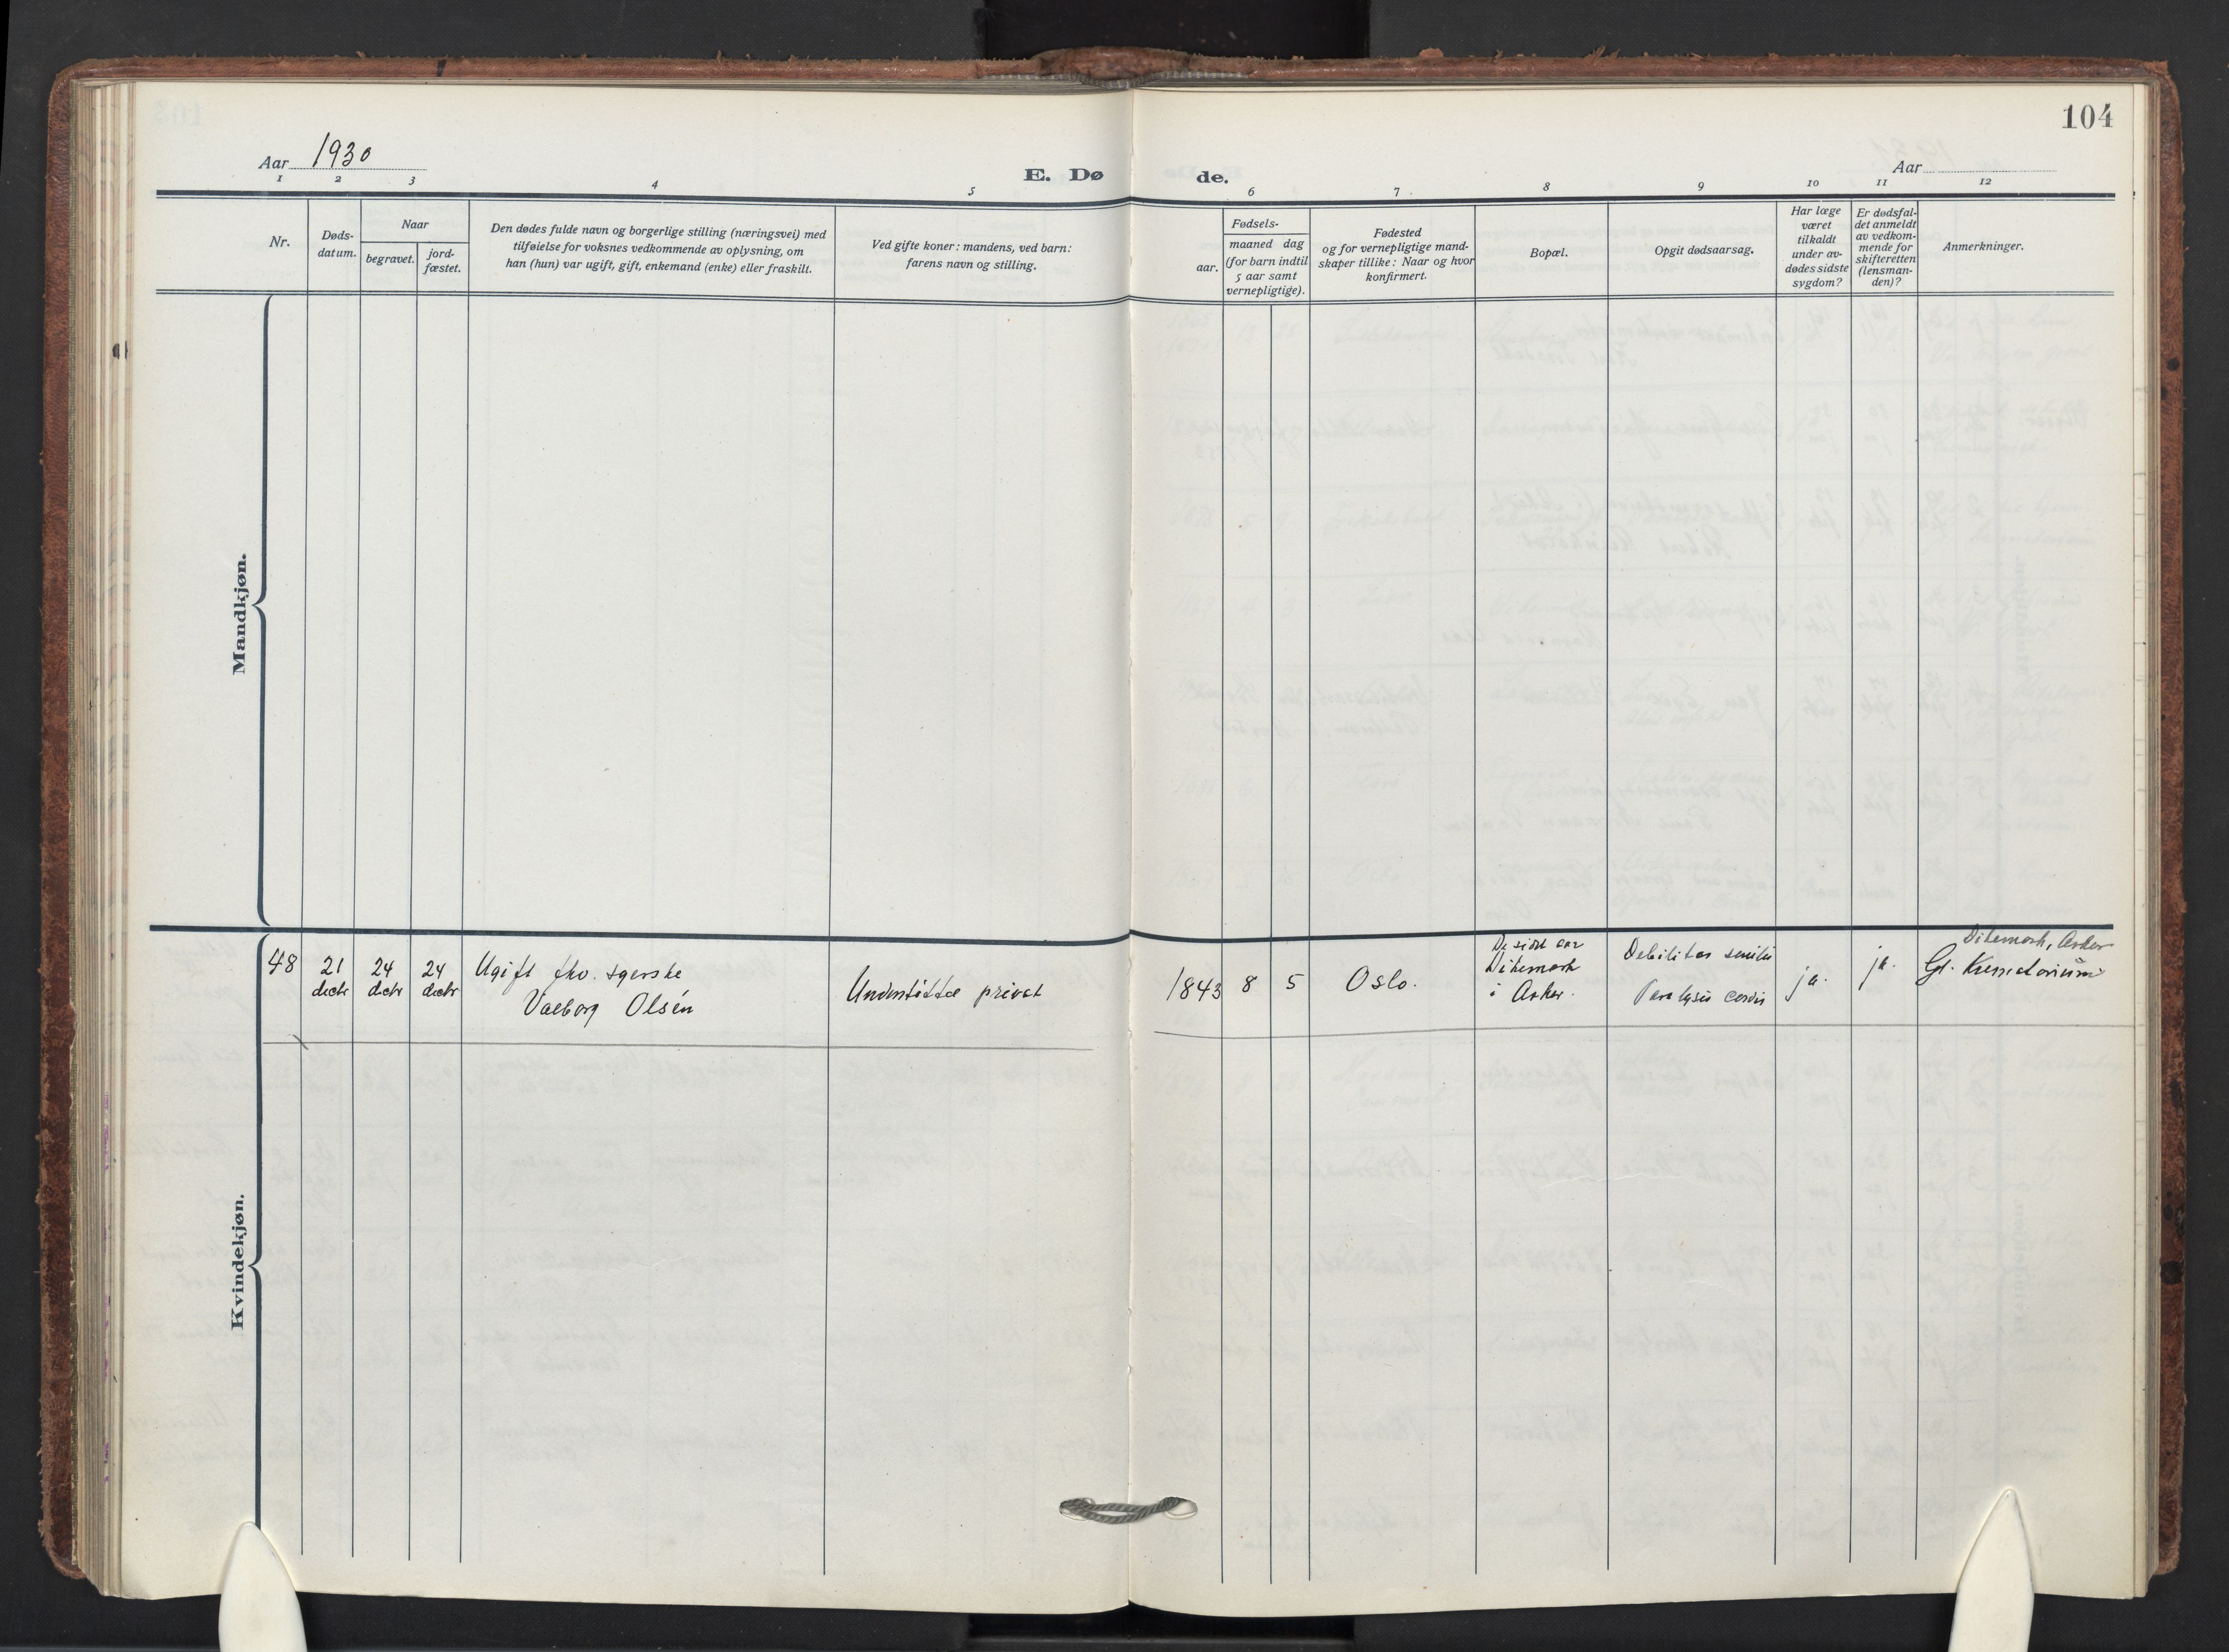 104
Aar 1930
E. Dø de.
Aar
1 2 3 4 5 6 7 8 9 10 11 12
Nr.
Døds-
datum.
Naar
begravet.
jord-
fæstet.
Den dødes fulde navn og borgerlige stilling (næringsvei) med
tilføielse for voksnes vedkommende av oplysning, om
han (hun) var ugift, gift, enkemand (enke) eller fraskilt.
Ved gifte koner: mandens, ved barn:
farens navn og stilling.
Fødsels-
aar.
maaned dag
(for barn indtil
5 aar samt
vernepligtige).
Fødested
og for vernepligtige mand-
skaper tillike: Naar og hvor
konfirmert.
Bopæl.
Opgit dødsaarsag.
Har læge
været
tilkaldt
under av-
dødes sidste
sygdom?
Er dødsfal-
det anmeldt
av vedkom-
mende for
skifteretten
(lensman-
den)?
Anmerkninger.
Mandkjøn.
Kvindekjøn.
48
21
decbr
24
decbr
24
decbr
Ugift fhv. syerske
Valborg Olsen
Understøttet privat
1843
8
5
Oslo.
De sidste aar
Dikemark
i Asker.
Debilitas senilis
Paralysis cordis
ja.
ja.
Dikemark, Asker
Gl. Krematorium